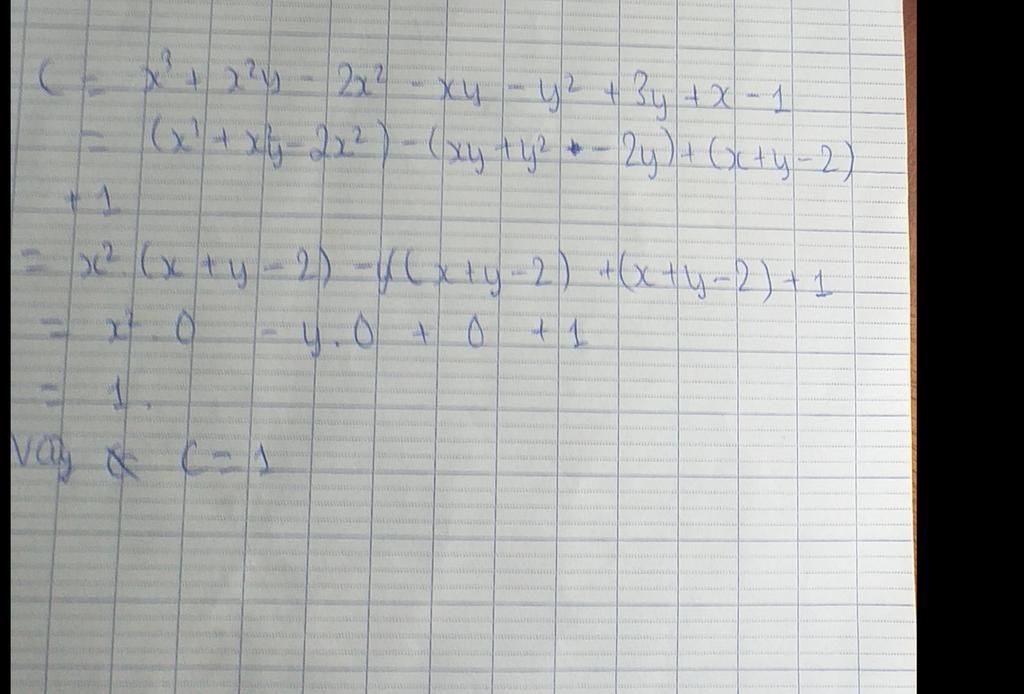 C = x³ + x²y - 2x² - xy - y² + 3y + x - 1
= (x³ + x²y - 2x²) - (xy + y² - 2y) + (x + y - 2)
+ 1
= x² (x + y - 2) - y(x + y - 2) + (x + y - 2) + 1
= x² . 0 - y . 0 + 0 + 1
= 1.
Vậy C = 1